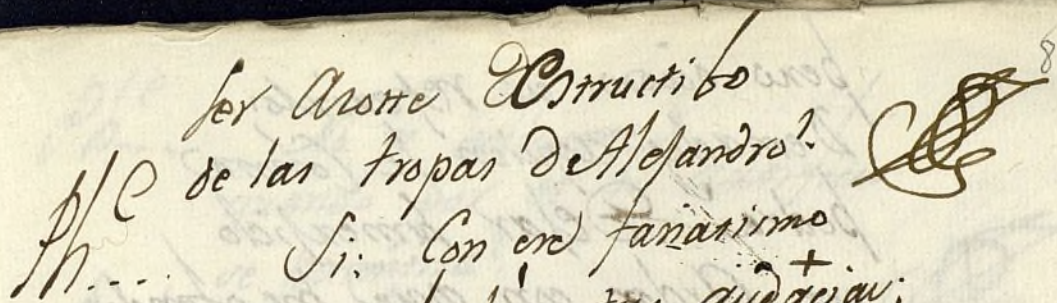 ser Azotte Destructibo
de las tropas de Alejandro?
Si: Con ese fanatismo
audacias;